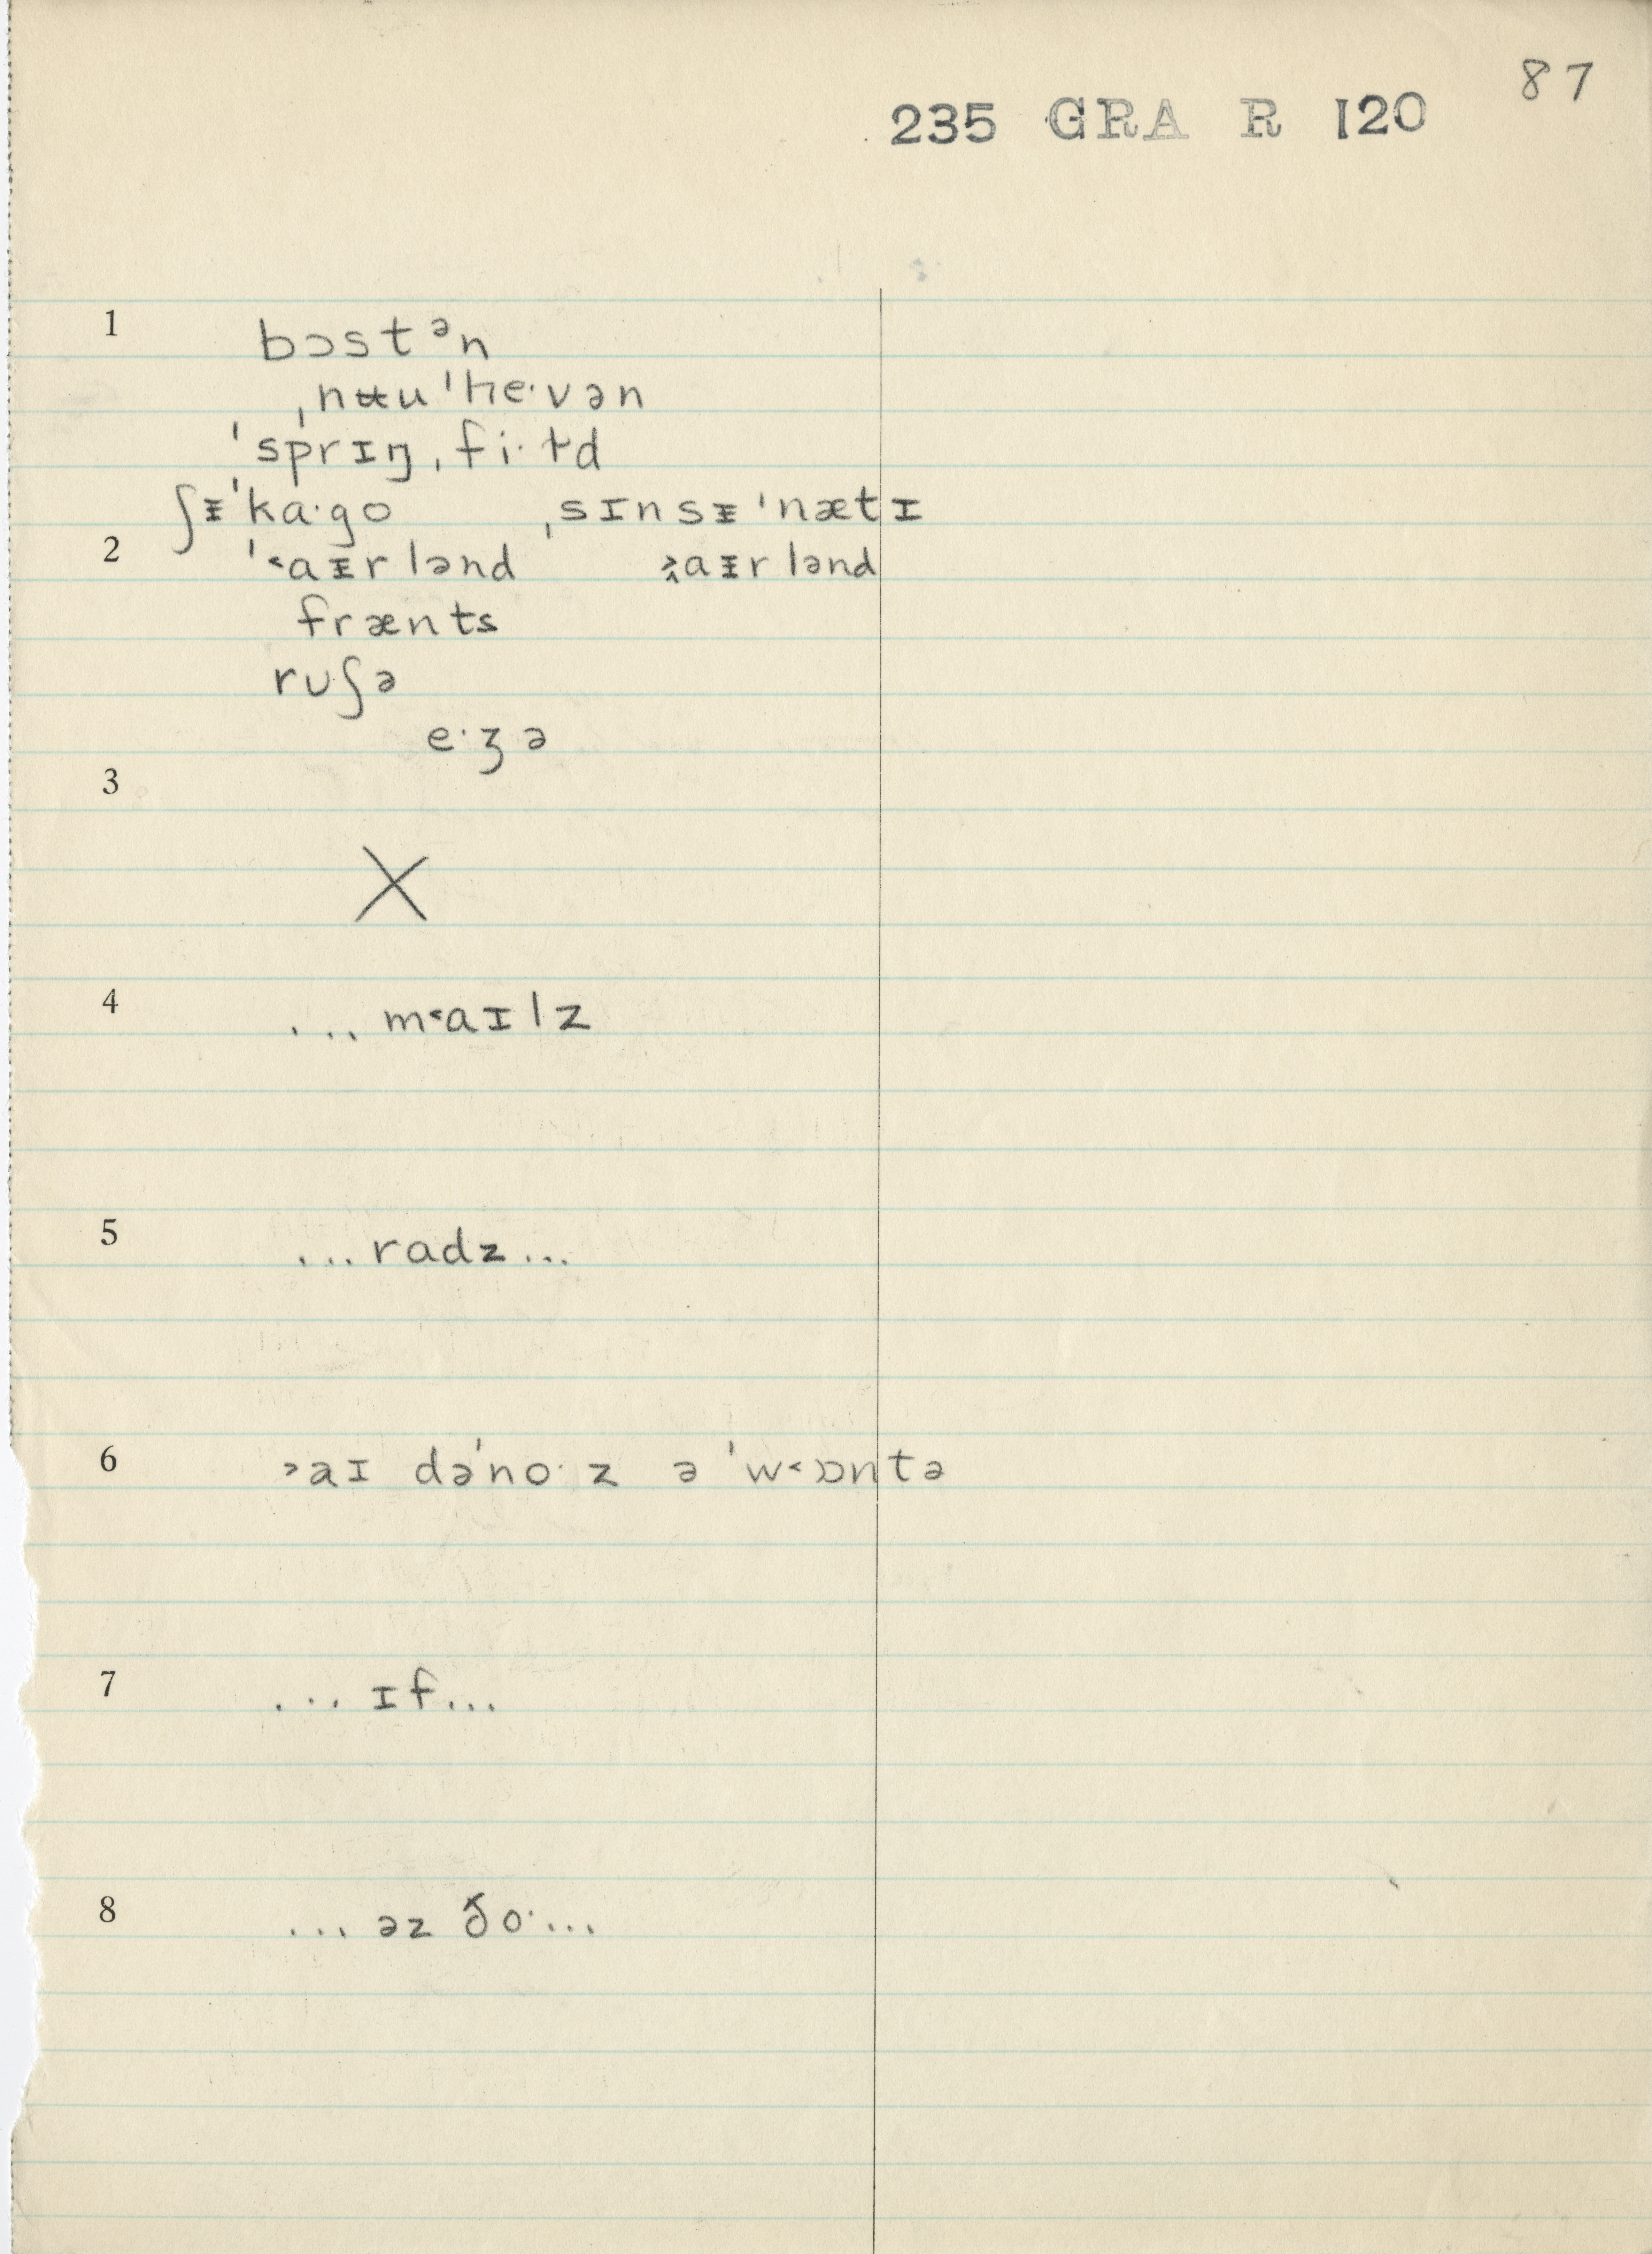 87
235 GRA R 120
1 bɔstᵊn
ˌnʉu'ɦe·vən
'sprɪŋˌfi·ɫd
ʃᵻ'ka·go ˌsɪnsᵻ'nætɪ
2 '˂aᵻrlənd ˃aᵻrlənd
frænts
ruʃə
e·ʒə
3
X
4 ... m˂aɪlz
5 ...radz...
6 ˃aɪ də'no·z ə 'w˂ɒntə
7 ...ɪf...
8 ...əz ðo·...